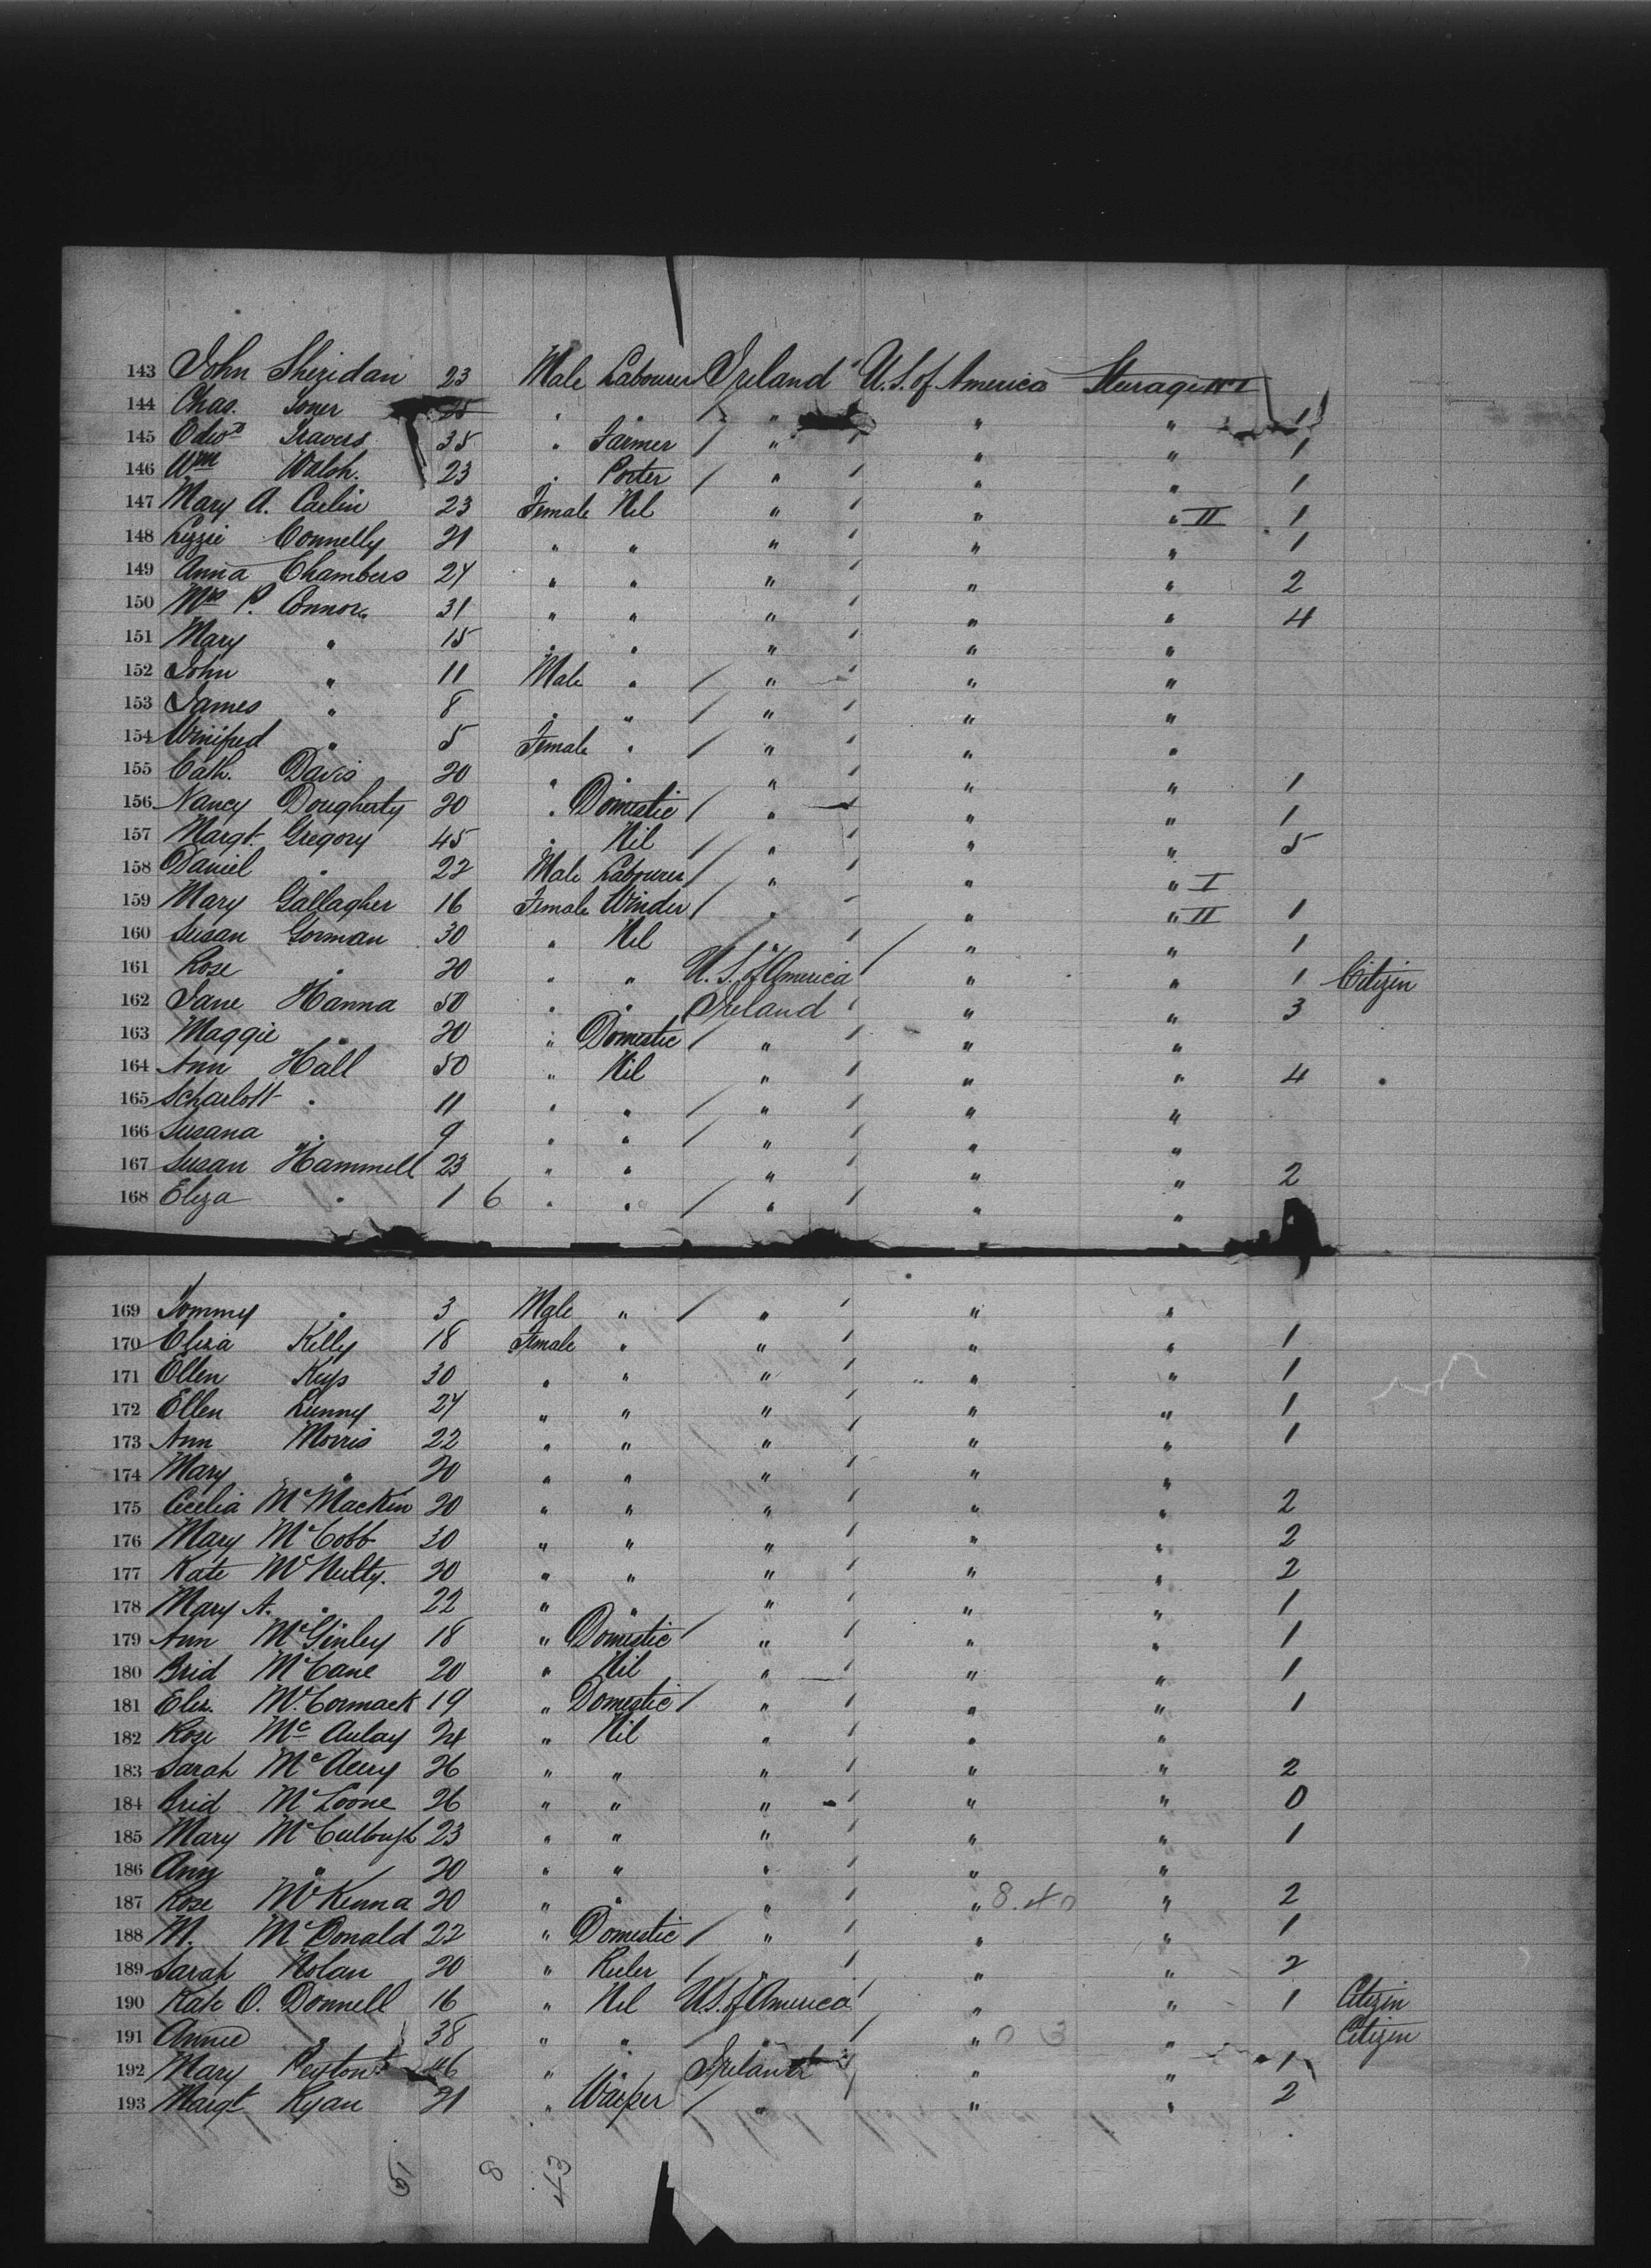 143 John Sheridan 23 Male Labourer Ireland U.S. of America Steerage No I
144 Chas. Toner 25 " " " " " 1
145 Edwd Travers 35 " Farmer " " " 1
146 Wm Walsh. 23 " Porter " " " 1
147 Mary A. Carlin 23 Female Nil " " " II 1
148 Lizzie Connelly 21 " " " " " 1
149 Anna Chambers 24 " " " " " 2
150 Mrs P. Connor 31 " " " " " 4
151 Mary " 15 " " " " "
152 John " 11 Male " " " "
153 James " 8 " " " " "
154 Winifred " 5 Female " " " "
155 Cath. Davis 20 " " " " " 1
156 Nancy Dougherty 20 " Domestic " " " 1
157 Margt. Gregory 45 " Nil " " " 5
158 Daniel " 22 Male Labourer " " " I
159 Mary Gallagher 16 Female Winder " " " II 1
160 Susan Gorman 30 " Nil " " " 1
161 Rose " 20 " " U.S. of America " " 1 Citizen
162 Jane Hanna 50 " " Ireland " " 3
163 Maggie " 20 " Domestic " " "
164 Ann Hall 50 " Nil " " " 4
165 Scharlott " 11 " " " " "
166 Susana " 9 " " " " "
167 Susan Hammell 23 " " " " " 2
168 Eliza " 1 6 " " " " "
169 Tommy " 3 Male " " " "
170 Eliza Kelly 18 Female " " " " 1
171 Ellen Keys 30 " " " " " 1
172 Ellen Lunny 24 " " " " " 1
173 Ann Morris 22 " " " " " 1
174 Mary " 20 " " " " "
175 Cecelia McMackin 20 " " " " " 2
176 Mary McCobb 30 " " " " " 2
177 Kate McNulty. 20 " " " " " 2
178 Mary A. " 22 " " " " " 1
179 Ann McGinley 18 " Domestic " " " 1
180 Brid McCane 20 " Nil " " " 1
181 Eliz. McCormack 19 " Domestic " " " 1
182 Rose McAulay 24 " Nil " " "
183 Sarah 26 " " " " " 2
184 Brid McLoone 26 " " " " " 0
185 Mary McCullough 23 " " " " " 1
186 Ann " 20 " " " " "
187 Rose McKenna 20 " " " " 8.40 " 2
188 M. McDonald 22 " Domestic " " " 1
189 Sarah Nolan 20 " Reeler " " " 2
190 Kate O. Donnell 16 " Nil U.S. of America " " 1 Citizen
191 Annie " 38 " " " " 0 3 " Citizen
192 Mary Peyton 46 " " Ireland " " 1
193 Margt Ryan 21 " " " " 2
8 43